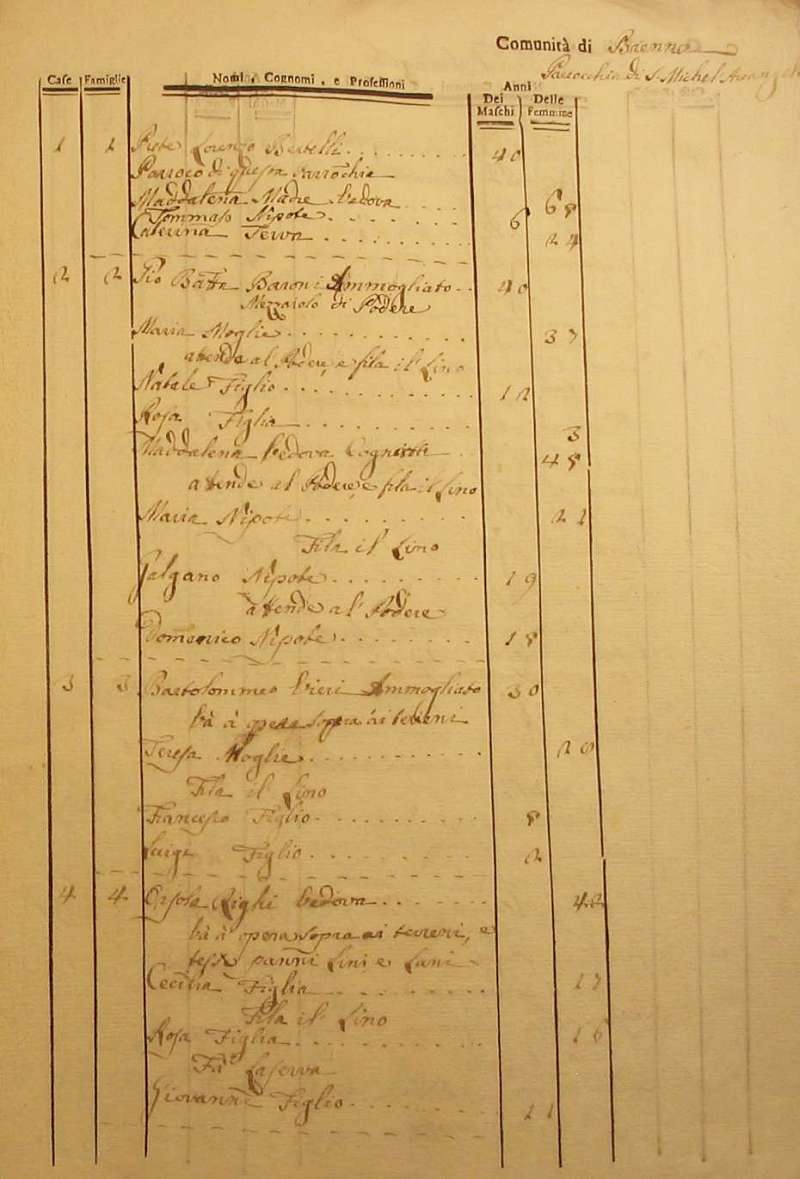 Comunità di Baenno
Parocchia di S. Michel Arcangelo
Case Famiglie Nomi, Cognomi, e Professioni Anni
Dei Maschi Delle Femmine
1 1 Prete Lorenzo Bertelli 40
Parroco di questa Parrochia
Maddalena Madre Vedova 68
Tommaso Nipote 6
Caterina Serva 24
2 2 Gio Batta Baroni Ammogliato 40
Mezzaiolo di Podere
Maria Moglie 37
atende al Podere e fila il Lino
Natale Figlio 12
Rosa Figlia 3
Maddalena Vedova Cognata 48
atende al Podere e fila il Lino
Maria Nipote 21
Fila il Lino
Galgano Nipote 19
atende al Podere
Domenico Nipote 18
3 3 Bartolommeo Vieri Ammogliato 30
Và à opera sopra ai tereni
Teresa Moglie 20
Fila il Lino
Francesco Figlio 8
Luigi Figlio 2
4 4 Orsola Righi Vedova 42
Và à opera sopra ai tereni, e
tesse panni Lini e Lani
Cecilia Figlia 17
Fila il Lino
Rosa Figlia 16
Fà la serva
Giovanni Figlio 11